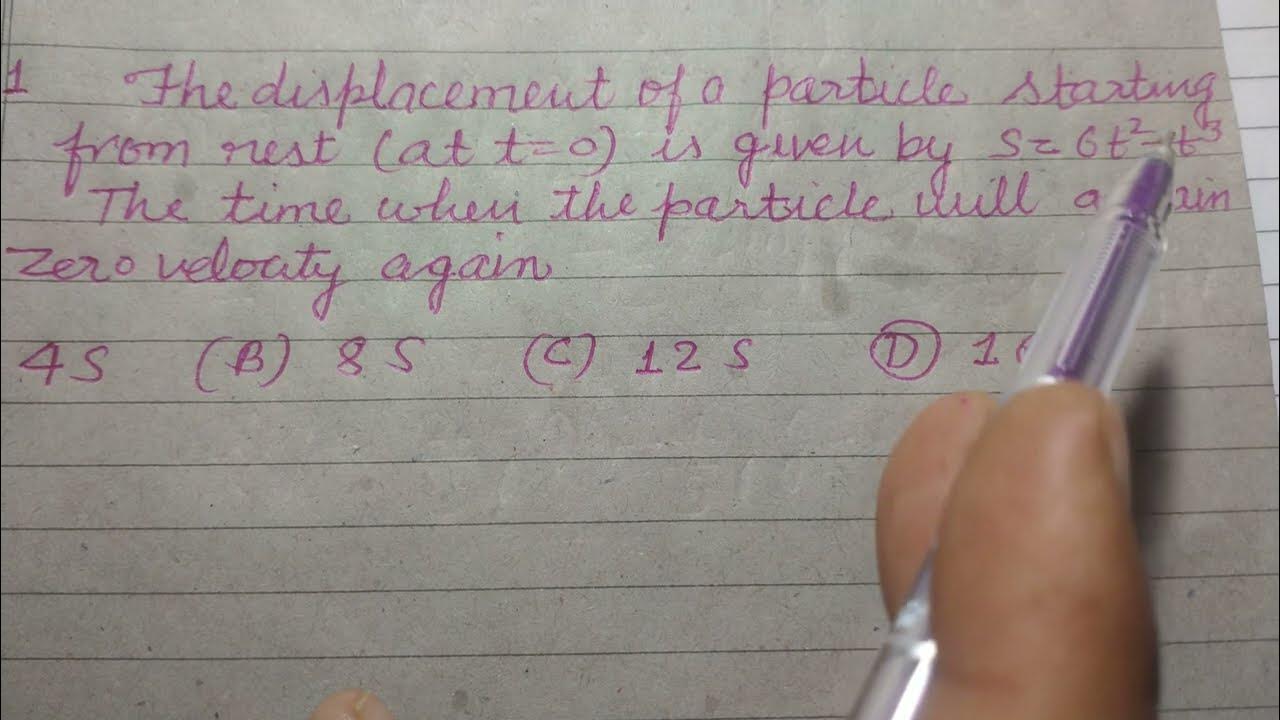 1 The displacement of a particle starting
from rest (at t=0) is given by s = 6t² - t³
The time when the particle will
zero velocity again
4 S (B) 8 S (C) 12 S (D)